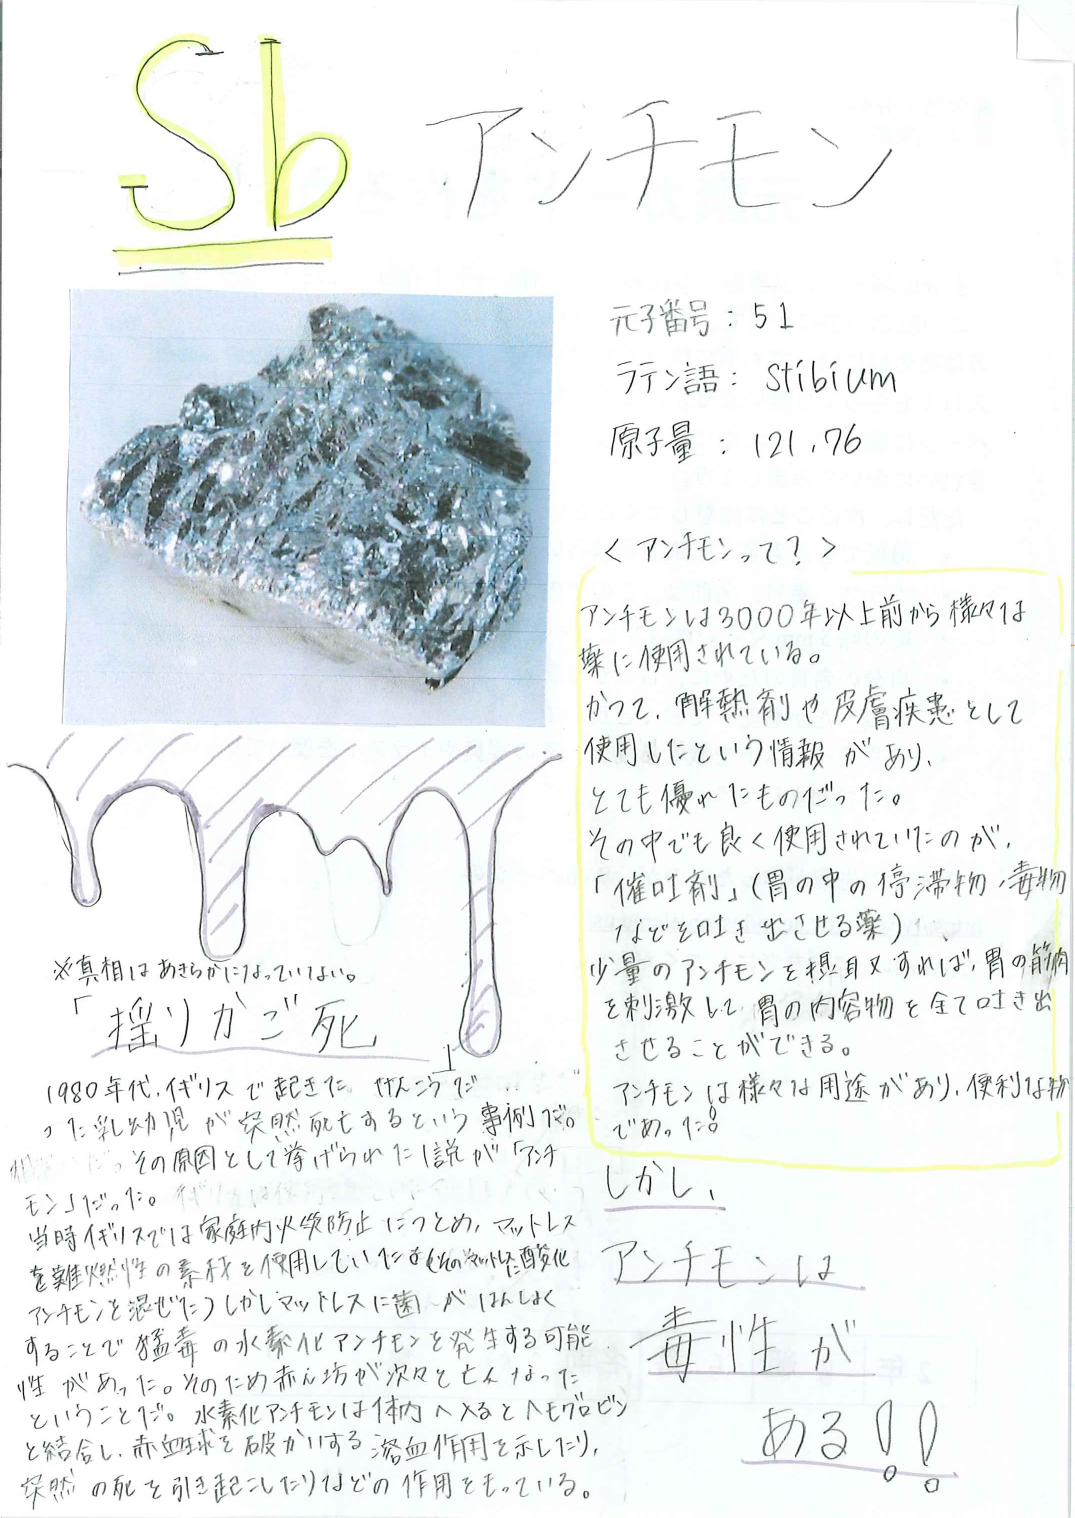 Sb アンチモン
元子番号：51
ラテン語：Stibium
原子量：121.76
＜アンチモンって？＞
アンチモンは3000年以上前から様々な
薬に使用されている。
かつて、解熱剤や皮膚疾患として
使用したという情報があり、
とても優れたものだった。
その中でも良く使用されていたのが、
「催吐剤」（胃の中の停滞物、毒物
などを吐き出させる薬）
少量のアンチモンを摂取すれば、胃の筋肉
を刺激して、胃の内容物を全て吐き出
させることができる。
アンチモンは様々な用途があり、便利な物
であった！
しかし、
アンチモンは
毒性が
ある！！
※真相はあきらかになっていない。
「揺りかご死」
1980年代、イギリスで起きた、けんこうだ
った乳幼児が突然死亡するという事例だ。
その原因として挙げられた1説が「アンチ
モン」だった。
当時イギリスでは家庭内火災防止につとめ、マットレス
を難燃性の素材を使用していた（そのマットレスに酸化
アンチモンを混ぜた）しかしマットレスに菌がはんしょく
することで猛毒の水素化アンチモンを発生する可能
性があった。そのため赤ん坊が次々と亡くなった
ということだ。水素化アンチモンは体内へ入るとヘモグロビン
と結合し、赤血球を破かいする溶血作用を示したり、
突然の死を引き起こしたりなどの作用をもっている。